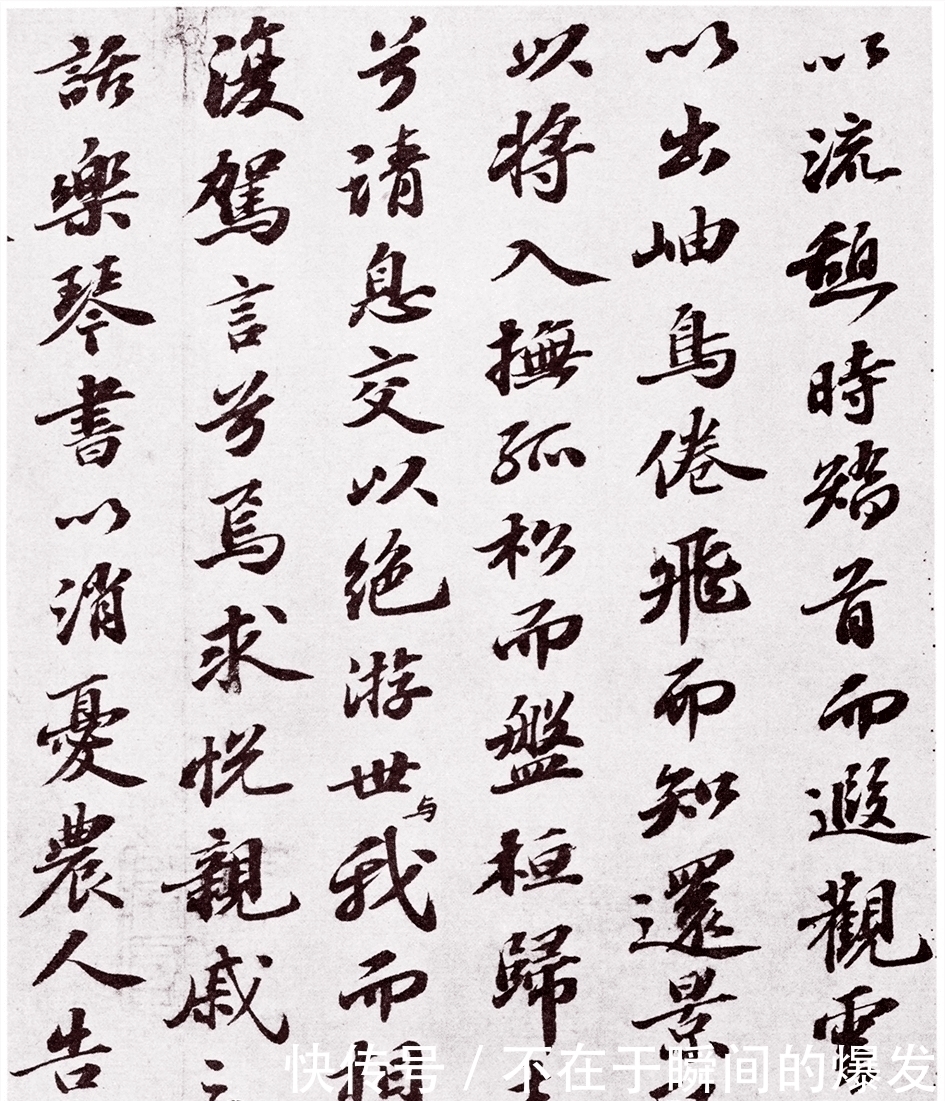 以流憩時矯首而遐觀雲
以出岫鳥倦飛而知還景
以将入撫孤松而盤桓歸
兮請息交以絶游世与我而相
復駕言兮焉求悦親戚之
話樂琴書以消憂農人告
快传号 / 不在于瞬间的爆发